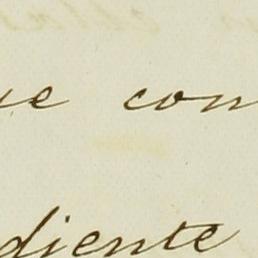 ue con
diente